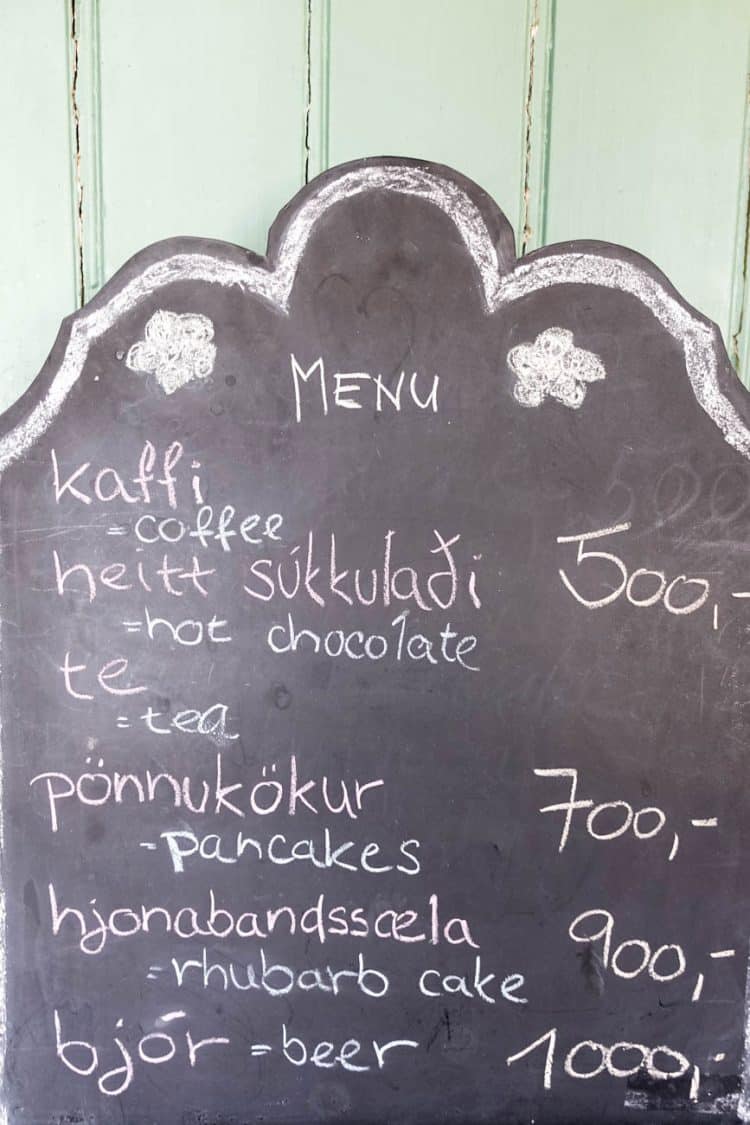 MENU
kaffi
=coffee
heitt súkkulaði 500,-
=hot chocolate
te
=tea
pönnukökur 700,-
-pancakes
hjonabandssæla 900,-
=rhubarb cake
bjór =beer 1000,-